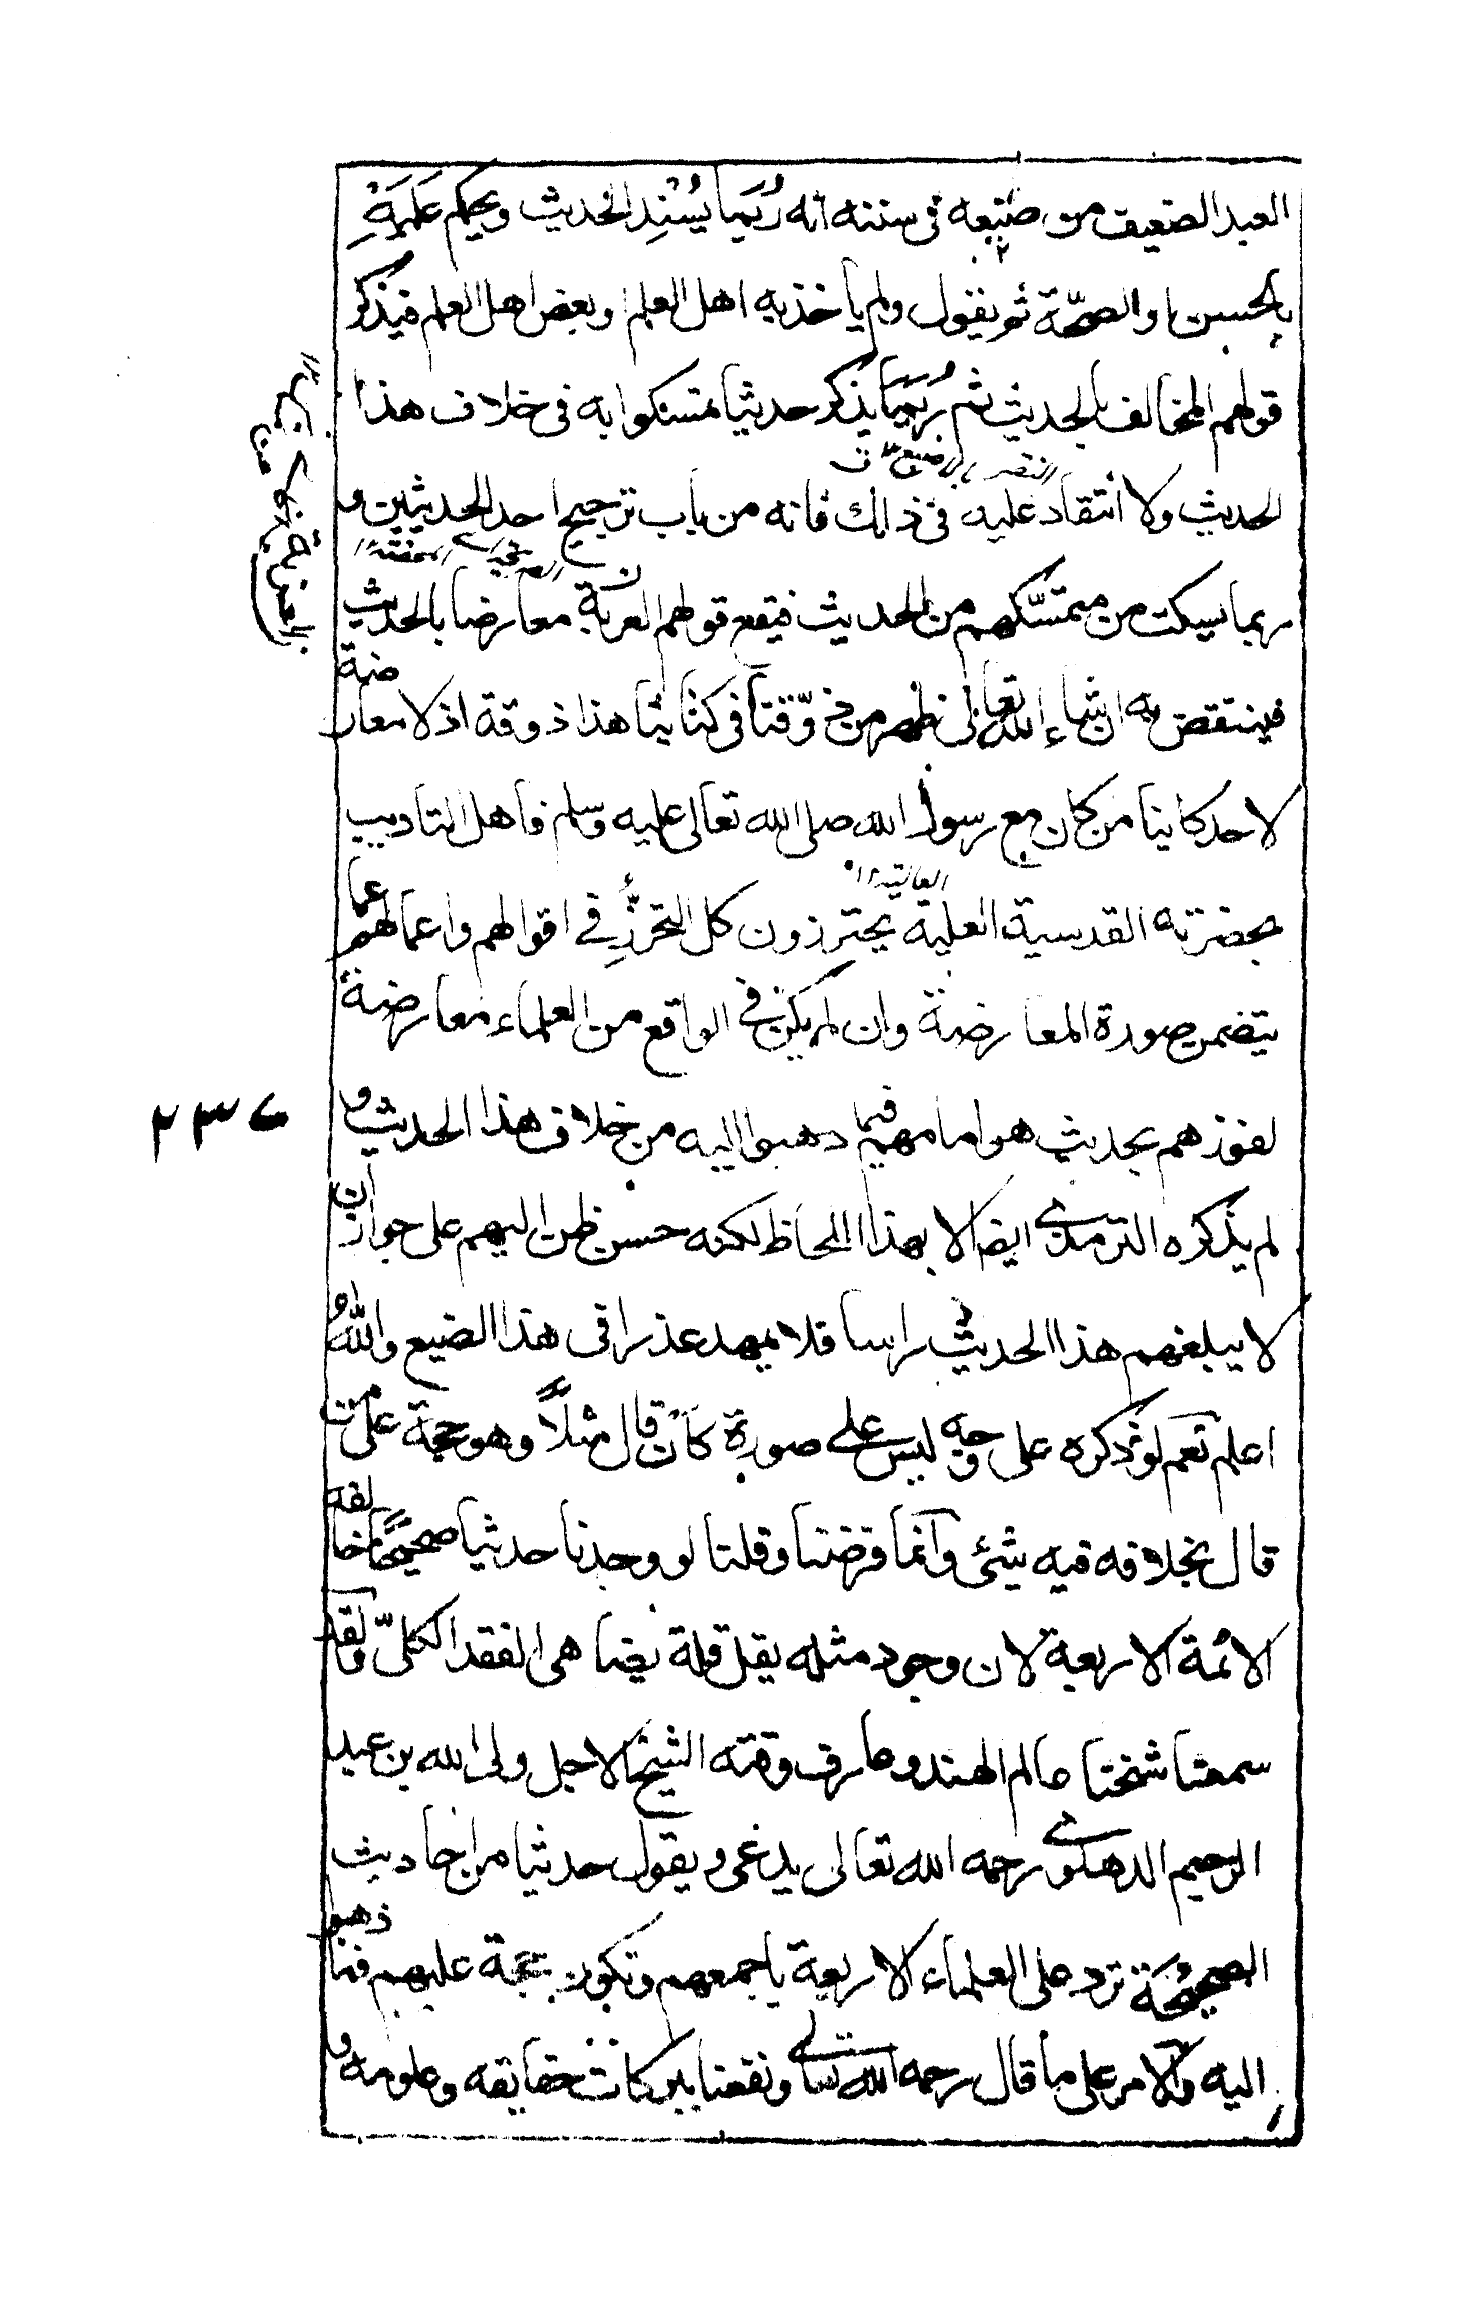 العبد الضعيف من صنيعه فى سننه انه رُبَمَا يُسْنِد الحديث ويحكم عَلَيْهِ
بالحسن او الصحّة ثم يقول ولم يأخذ به اهل العلم او بعض اهل العلم فيذكر
قولهم المخالف بالحديث ثم رُبَمَا يذكر حديثا تمسكوا به فى خلاف هذا
الحديث ولا انتقاد عليه فى ذلك فانه من باب ترجيح احد الحديثين و
ربما يسكت من متمسّكهم من الحديث فيقع قولهم العربة معارضا بالحديث
فينتقض به ان شاء الله تعالى نظهر من فوّقتا فى كتابنا هذا ذوقه اذ لا معارضة
لاحد كاينا من كان مع رسول الله صلى الله تعالى عليه وسلم فاهل التاديب
بحضرته القدسية العلية يحترزون كل التحرّزِ فى اقوالهم واعمالهم عما
يتضمن صورة المعارضة وان لم يكن فى الواقع من العلماء معارضة
لفوزهم بحديث هو امامهم فيما ذهبوا اليه من خلاف هذا الحديث و
لم يذكره الترمذى ايضا الا بهذا اللحاظ لكنه حسن ظن اليهم على جواز ان
لا يبلغهم هذا الحديث راسا فلا يمهد عذرا فى هذا الضيع واللهُ
اعلم نعم لو ذكره على وجه ليس على صورة كأن قال مثلاً وهو حجة على من
قال بخلافه فيه شئ وانما فرضنا وقلنا لو وجدنا حديثا صحيحًا خالفه
الائمة الاربعة لان وجود مثله يقل قلة يضاهى الفقد الكلىّ ولقد
سمعنا شيخنا عالم الهند وعارف وقته الشيخ الاجل ولى الله بن عبد
الرحيم الدهلوى رحمه الله تعالى يدعى ويقول حديثا من احاديث
الصحيحة ترد على العلماء الاربعة باجمعهم وتكون حجة عليهم فيما ذهبوا
اليه والامر على ما قال رحمه الله تعالى ونفعنا ببركات حقايقه وعلومه و
العالية
٢٣٧